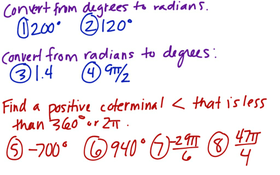 Convert from degrees to radians.
① 200° ② 120°
Convert from radians to degrees:
③ 1.4 ④ 9π/2
Find a positive coterminal < that is less
than 360° or 2π.
⑤ -700° ⑥ 940° ⑦ -29π/6 ⑧ 47π/4